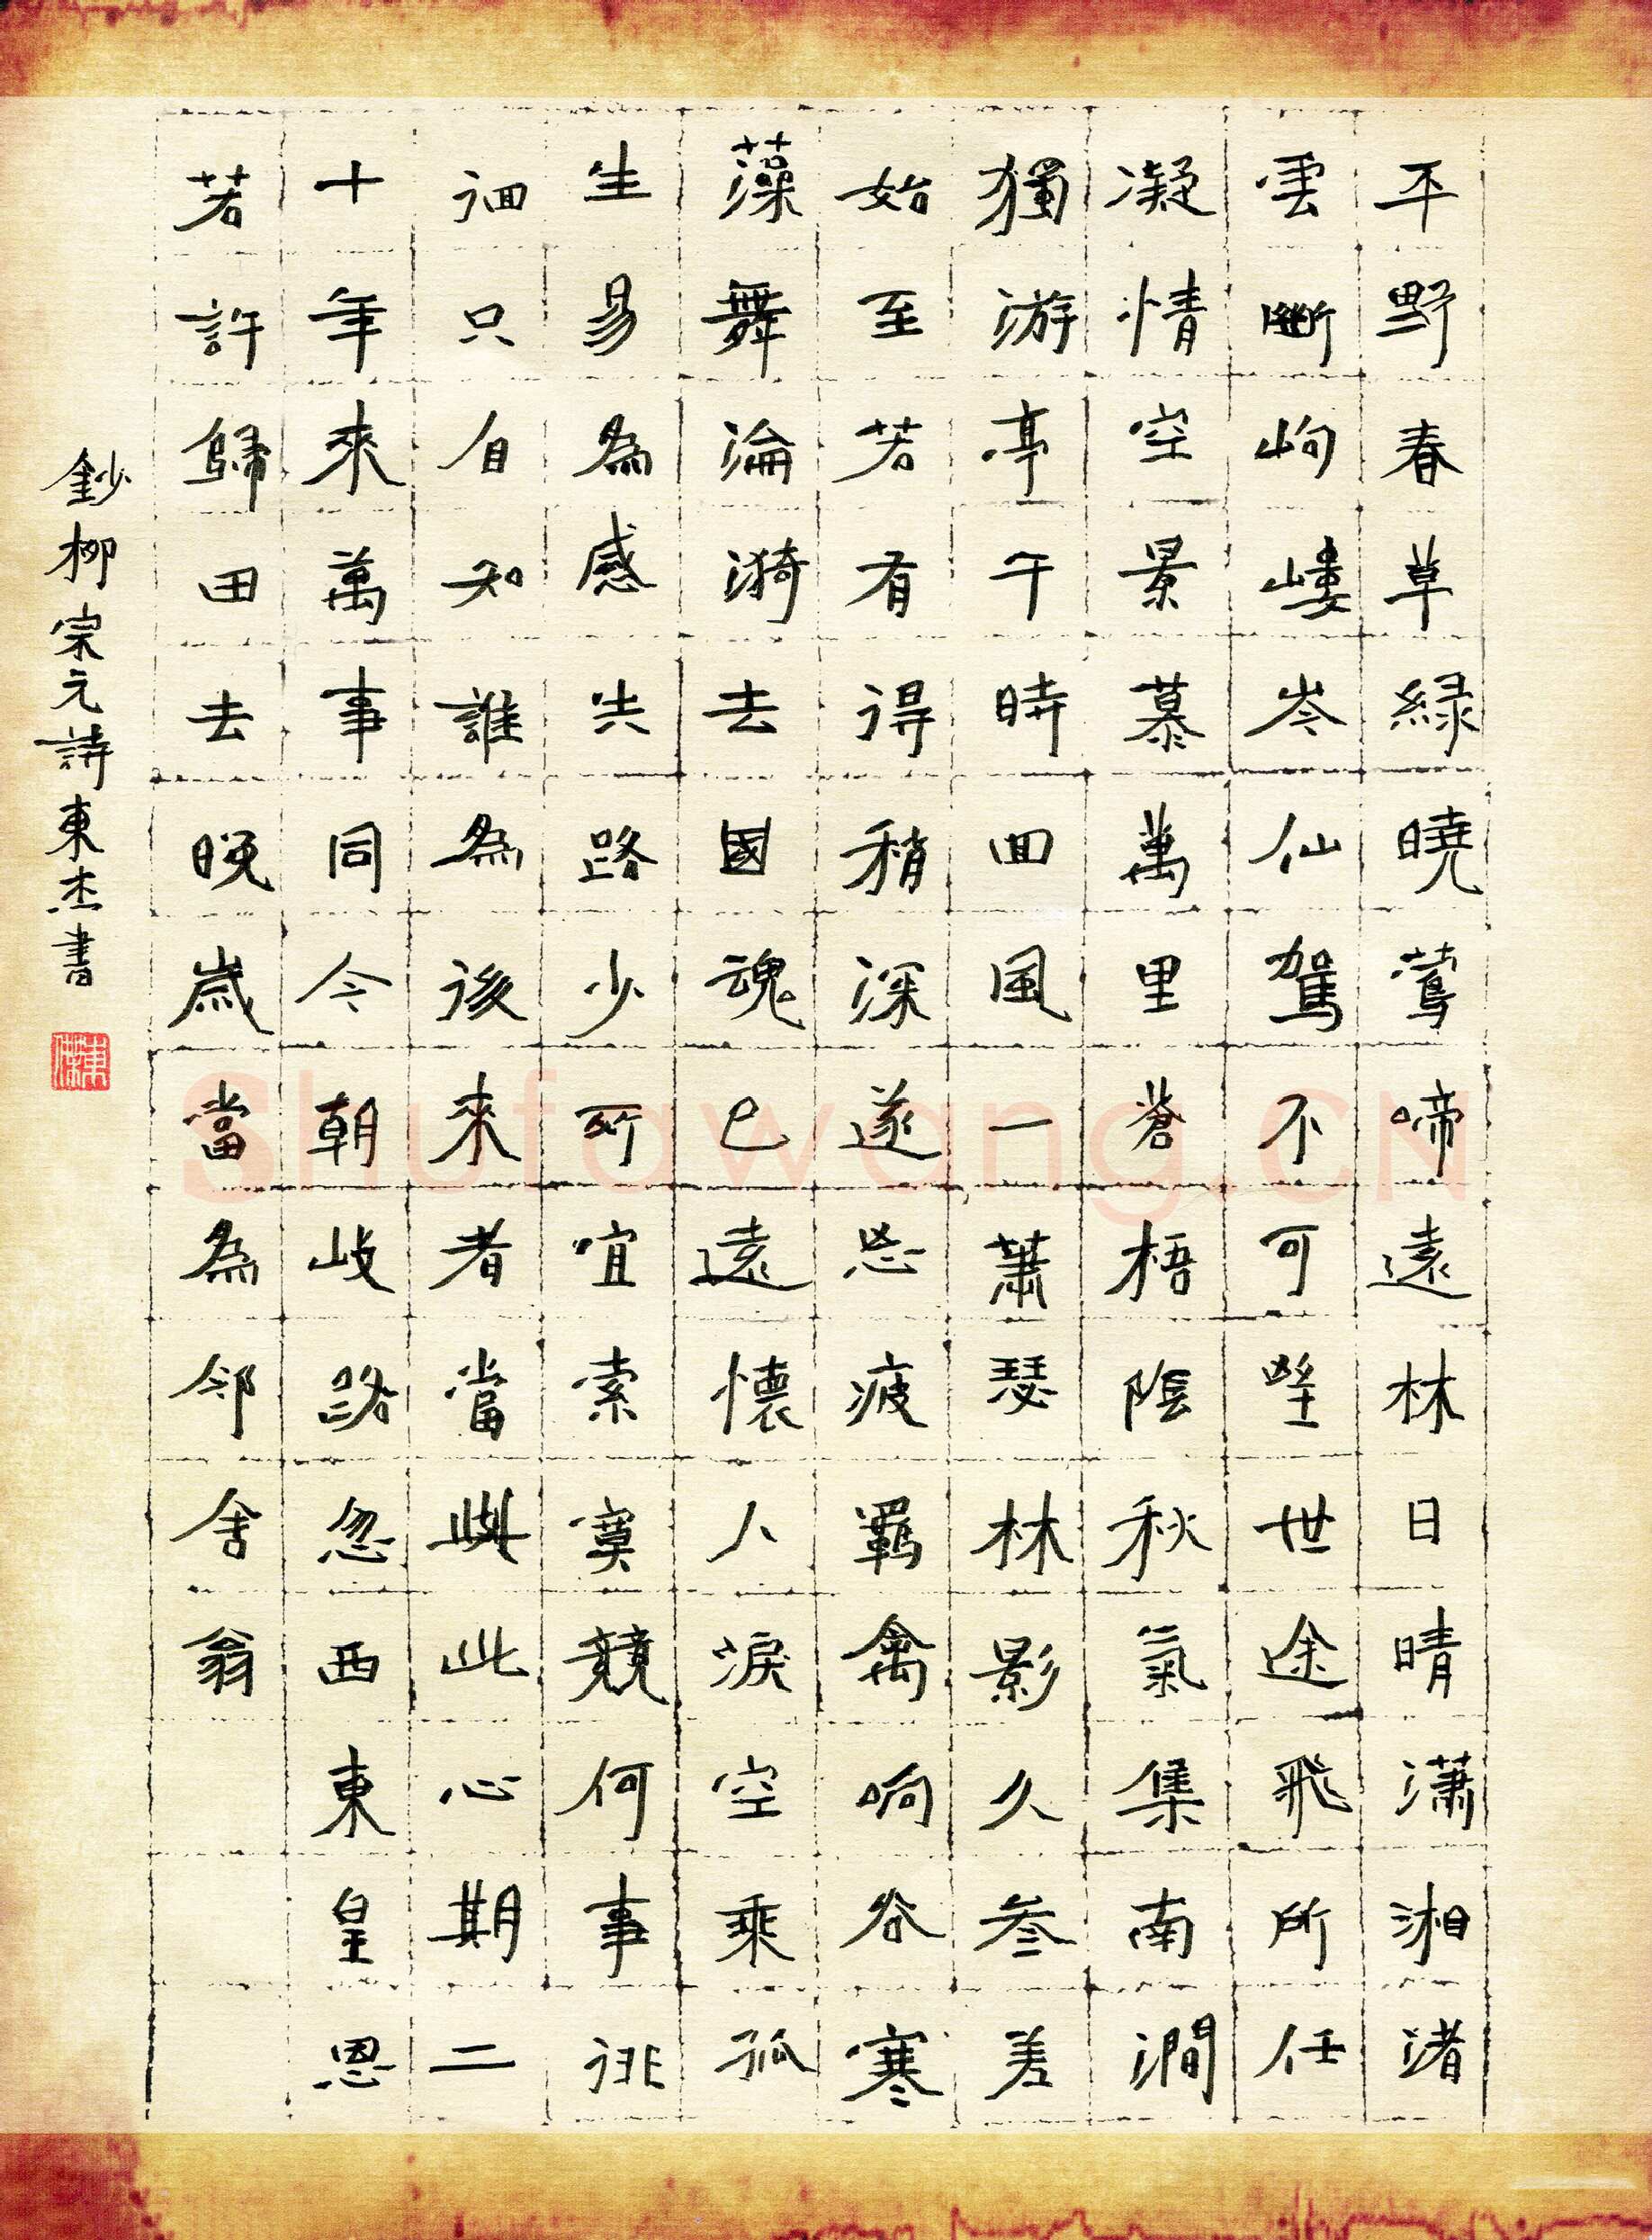 平野春草緑曉鶯啼遠林日晴瀟湘渚
雲斷岣嶁岑仙駕不可望世途飛所任
凝情空景慕萬里蒼梧陰秋氣集南澗
獨游亭午時回風一蕭瑟林影久参差
始至若有得稍深遂忘疲羈禽响谷寒
藻舞淪漪去國魂已遠懷人淚空乘孤
生易為感失路少所宜索寞競何事徘
徊只自知誰為後來者當與此心期二
十年來萬事同今朝歧路忽西東皇恩
若許歸田去晚歲當為邻舍翁
鈔柳宗元詩東杰書
Shufawang.CN